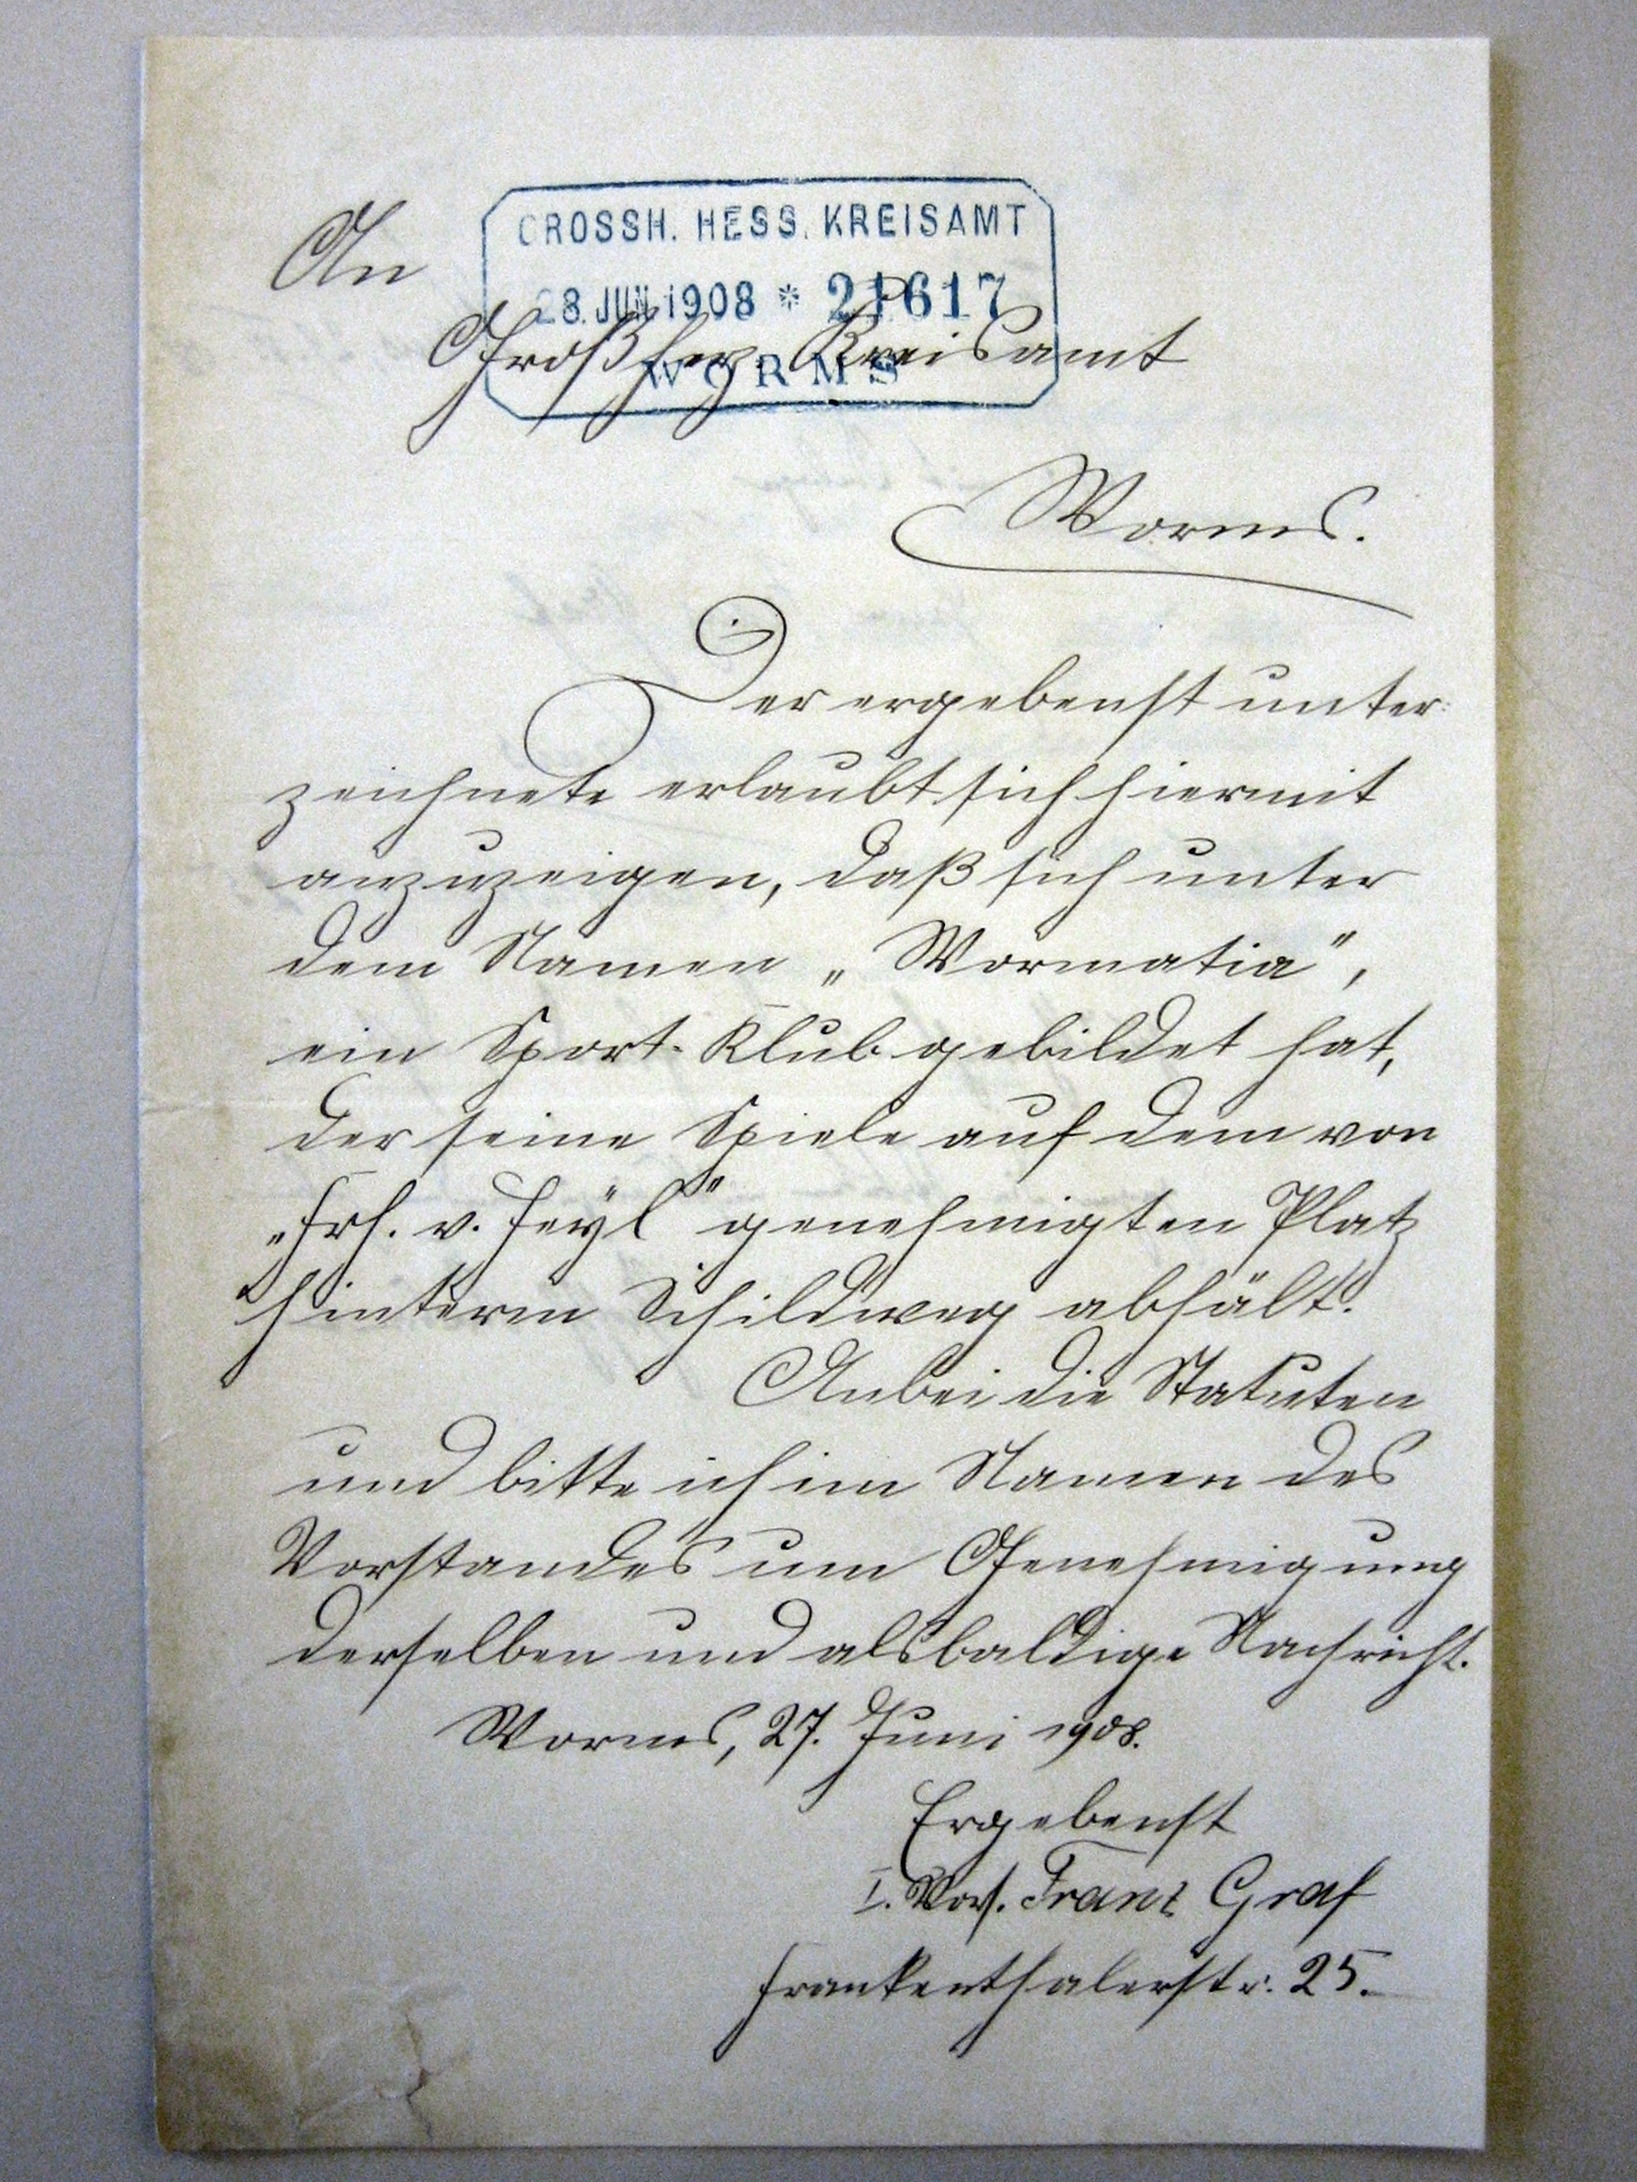 GROSSH. HESS. KREISAMT
28. JUN. 1908 * 21617
WORMS
An
Großherz. Kreisamt
Worms.
Der ergebenst unter-
zeichnete erlaubt sich hiermit
anzuzeigen, daß sich unter
dem Namen „Wormatia",
ein Sport-Klub gebildet hat,
der seine Spiele auf dem von
„Frh. v. Heyl" genehmigten Platz
hinterm Schildweg abhält.
Anbei die Statuten
und bitte ich im Namen des
Vorstandes um Genehmigung
derselben und alsbaldige Nachricht.
Worms, 27. Juni 1908.
Ergebenst
I. Vors. Franz Graf
Frankenthalerstr. 25.